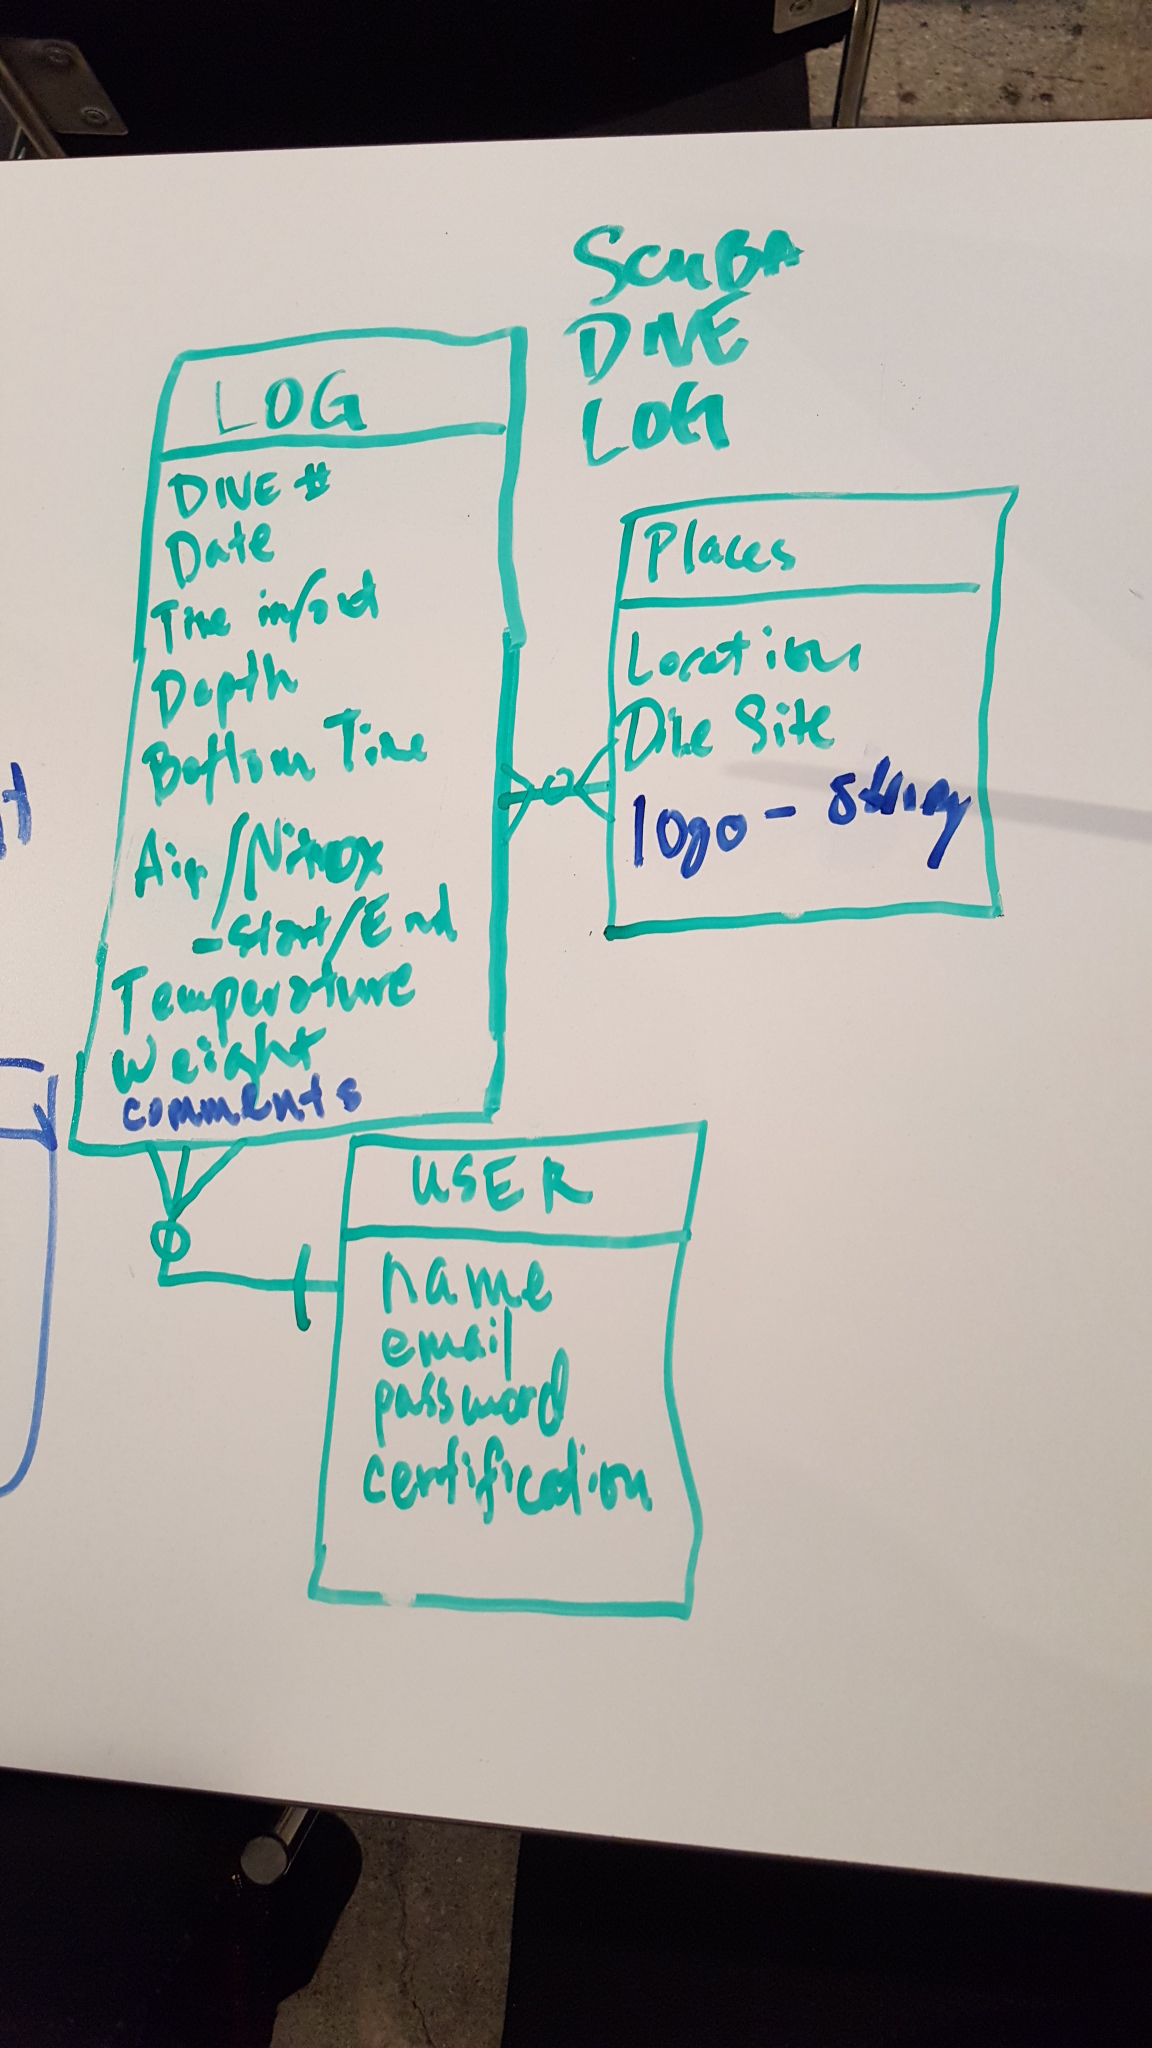 SCUBA
DIVE
LOG
LOG
DIVE #
Date
Time in/out
Depth
Bottom Time
Air/Nitrox
- Start/End
Temperature
Weight
comments
Places
Location
Dive Site
logo - string
USER
name
email
password
certification